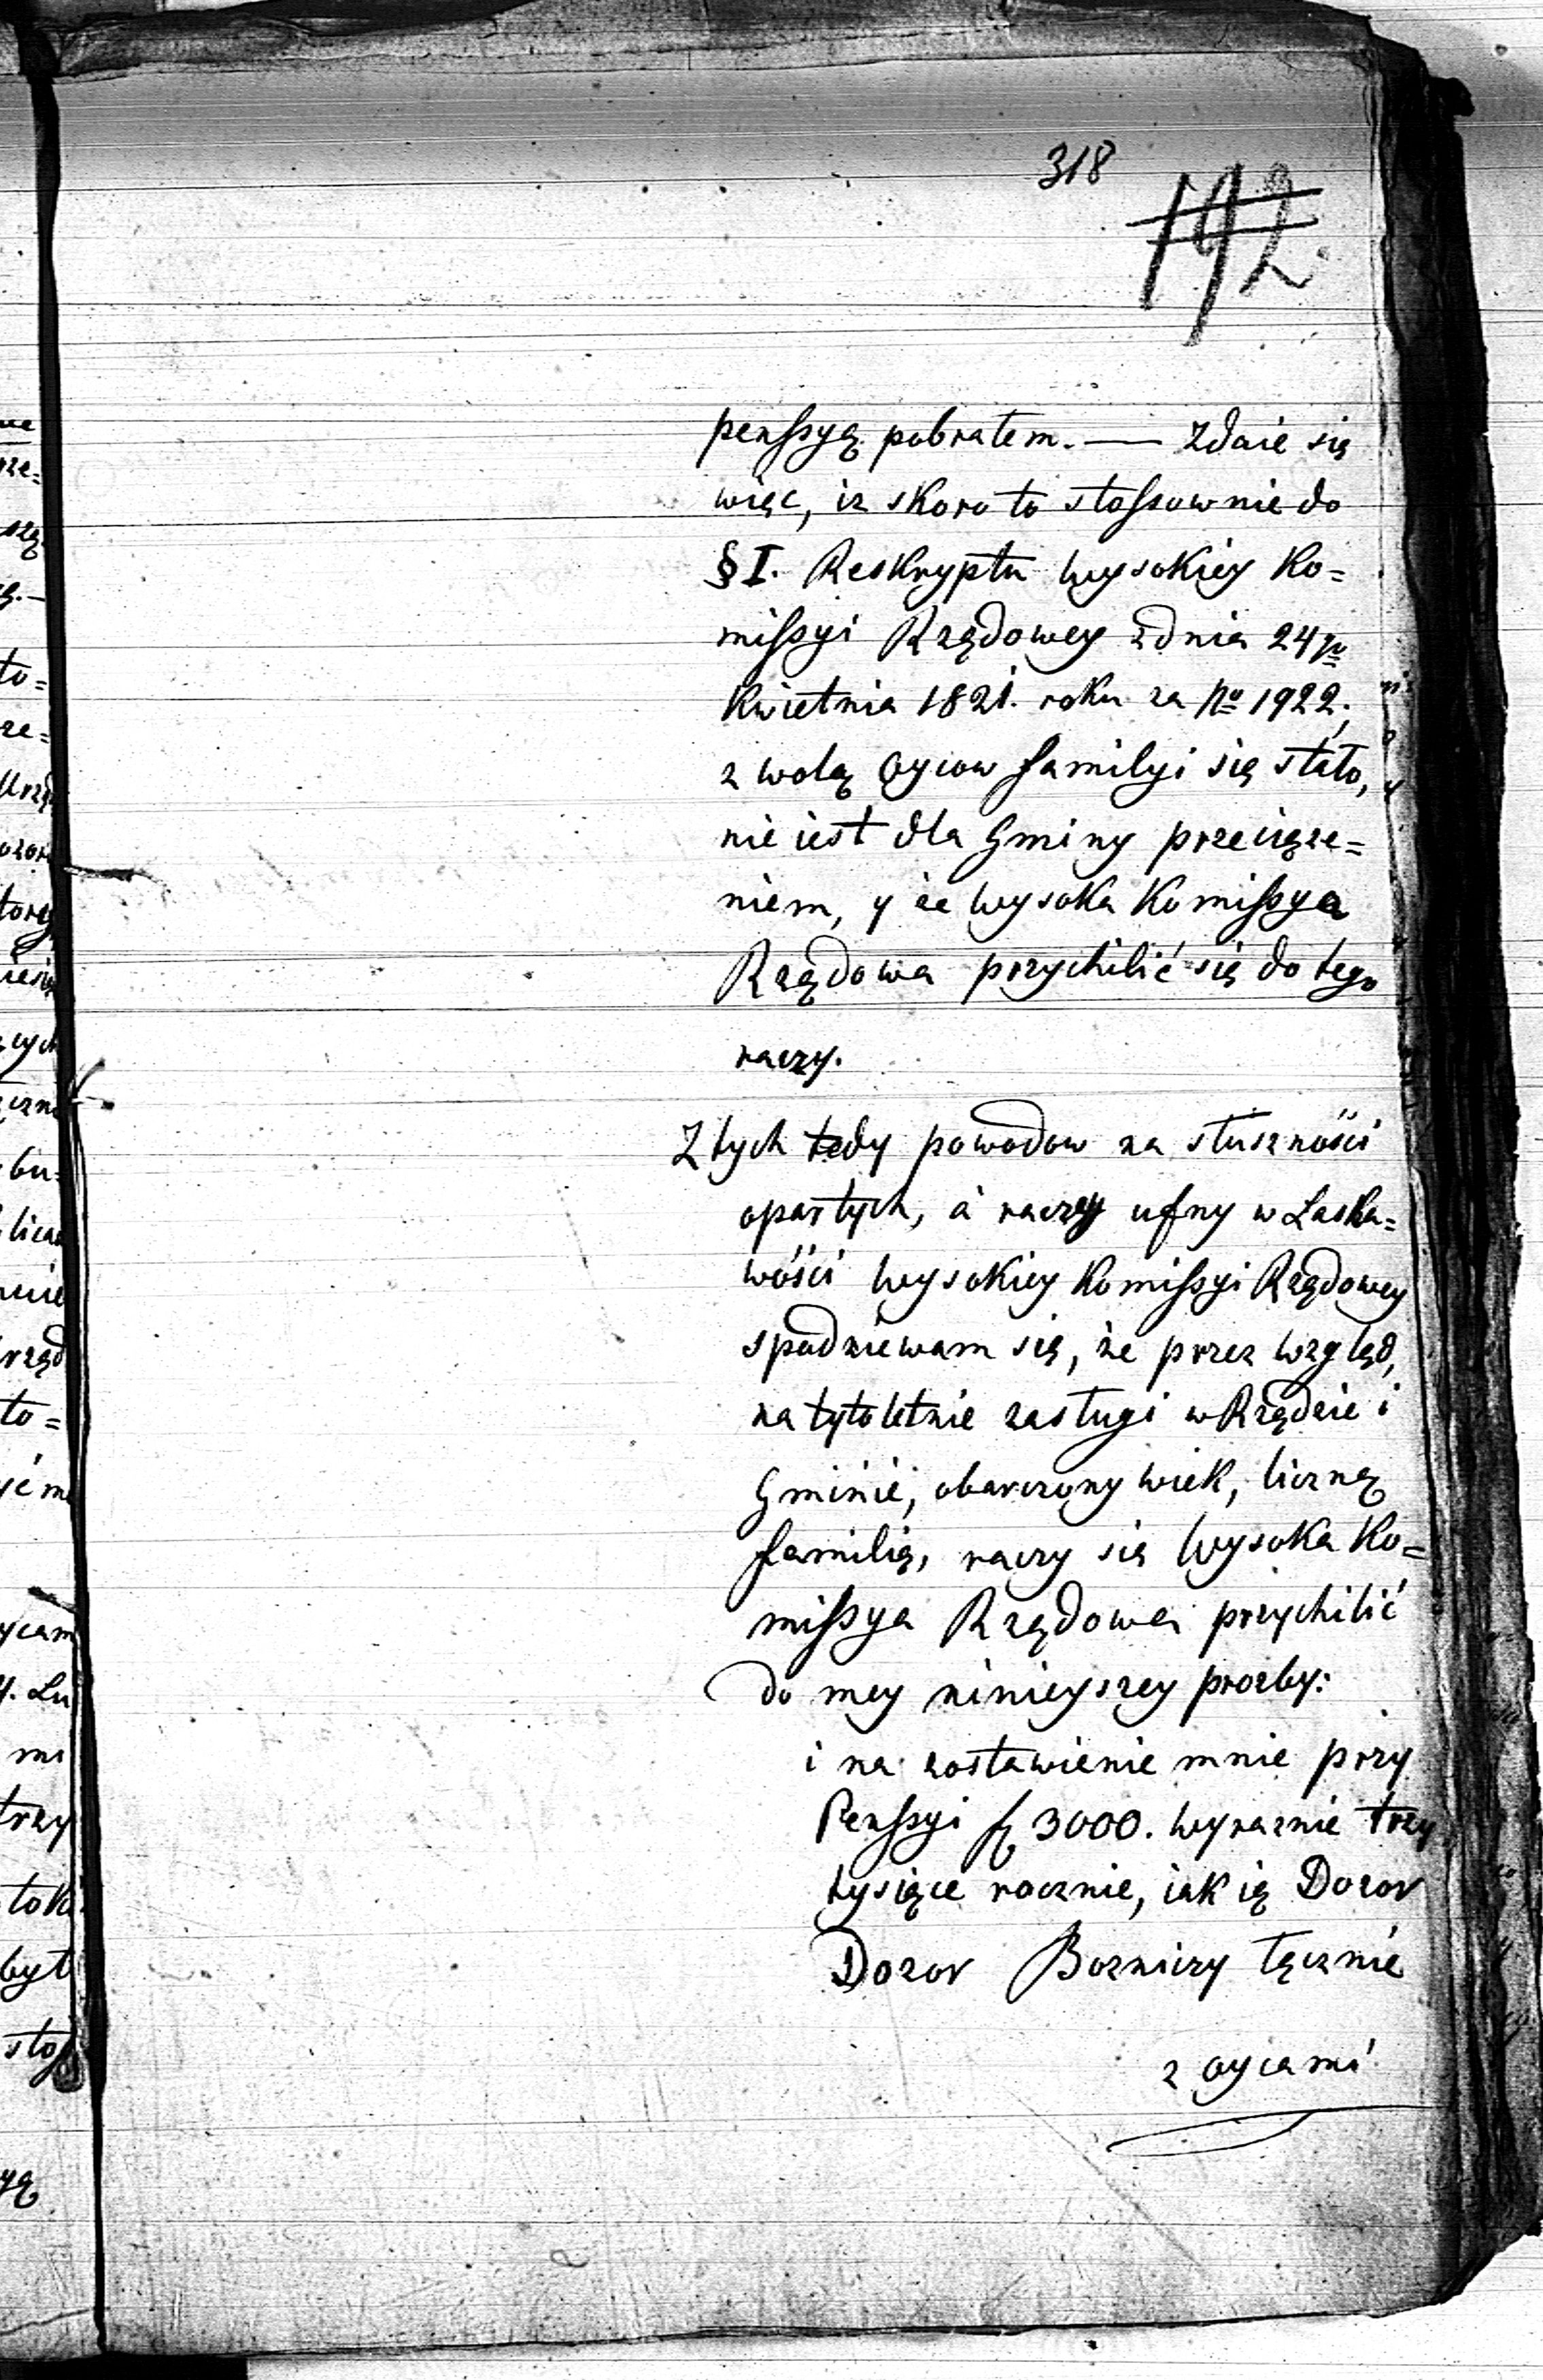 318
192.
penssyą pobratem. — Zdaie się
więc, iz skoro to stossownie do
§ I. Reskryptu Wysokiey Ko=
missyi Rządowey zdnia 24go
Kwietnia 1821. roku za No 1922;
z wolą Oycow familyi się stało,
nie iest dla Gminy przeciąże=
niem, y że Wysoka Komissya
Rządowa przychilić się do tego
raczy.
Z tych tedy powodow na słuszności
opartych, a raczy ufny w Laska=
wości Wysokiey Komissyi Rządowey
spodziewam się, że przez wzgląd,
na tyloletnie zasługi w Rządzie i
Gminie, obarczony wiek, liczną
familią, raczy się Wysoka Ko=
missya Rządowa przychilić
do mey ninieyszey prozby:
i na zostawienie mnie przy
Penssyi f 3000. wyraznie trzy
tysiące rocznie, iak ią Dozor
Dozor Bozniczy łącznie
z oycami